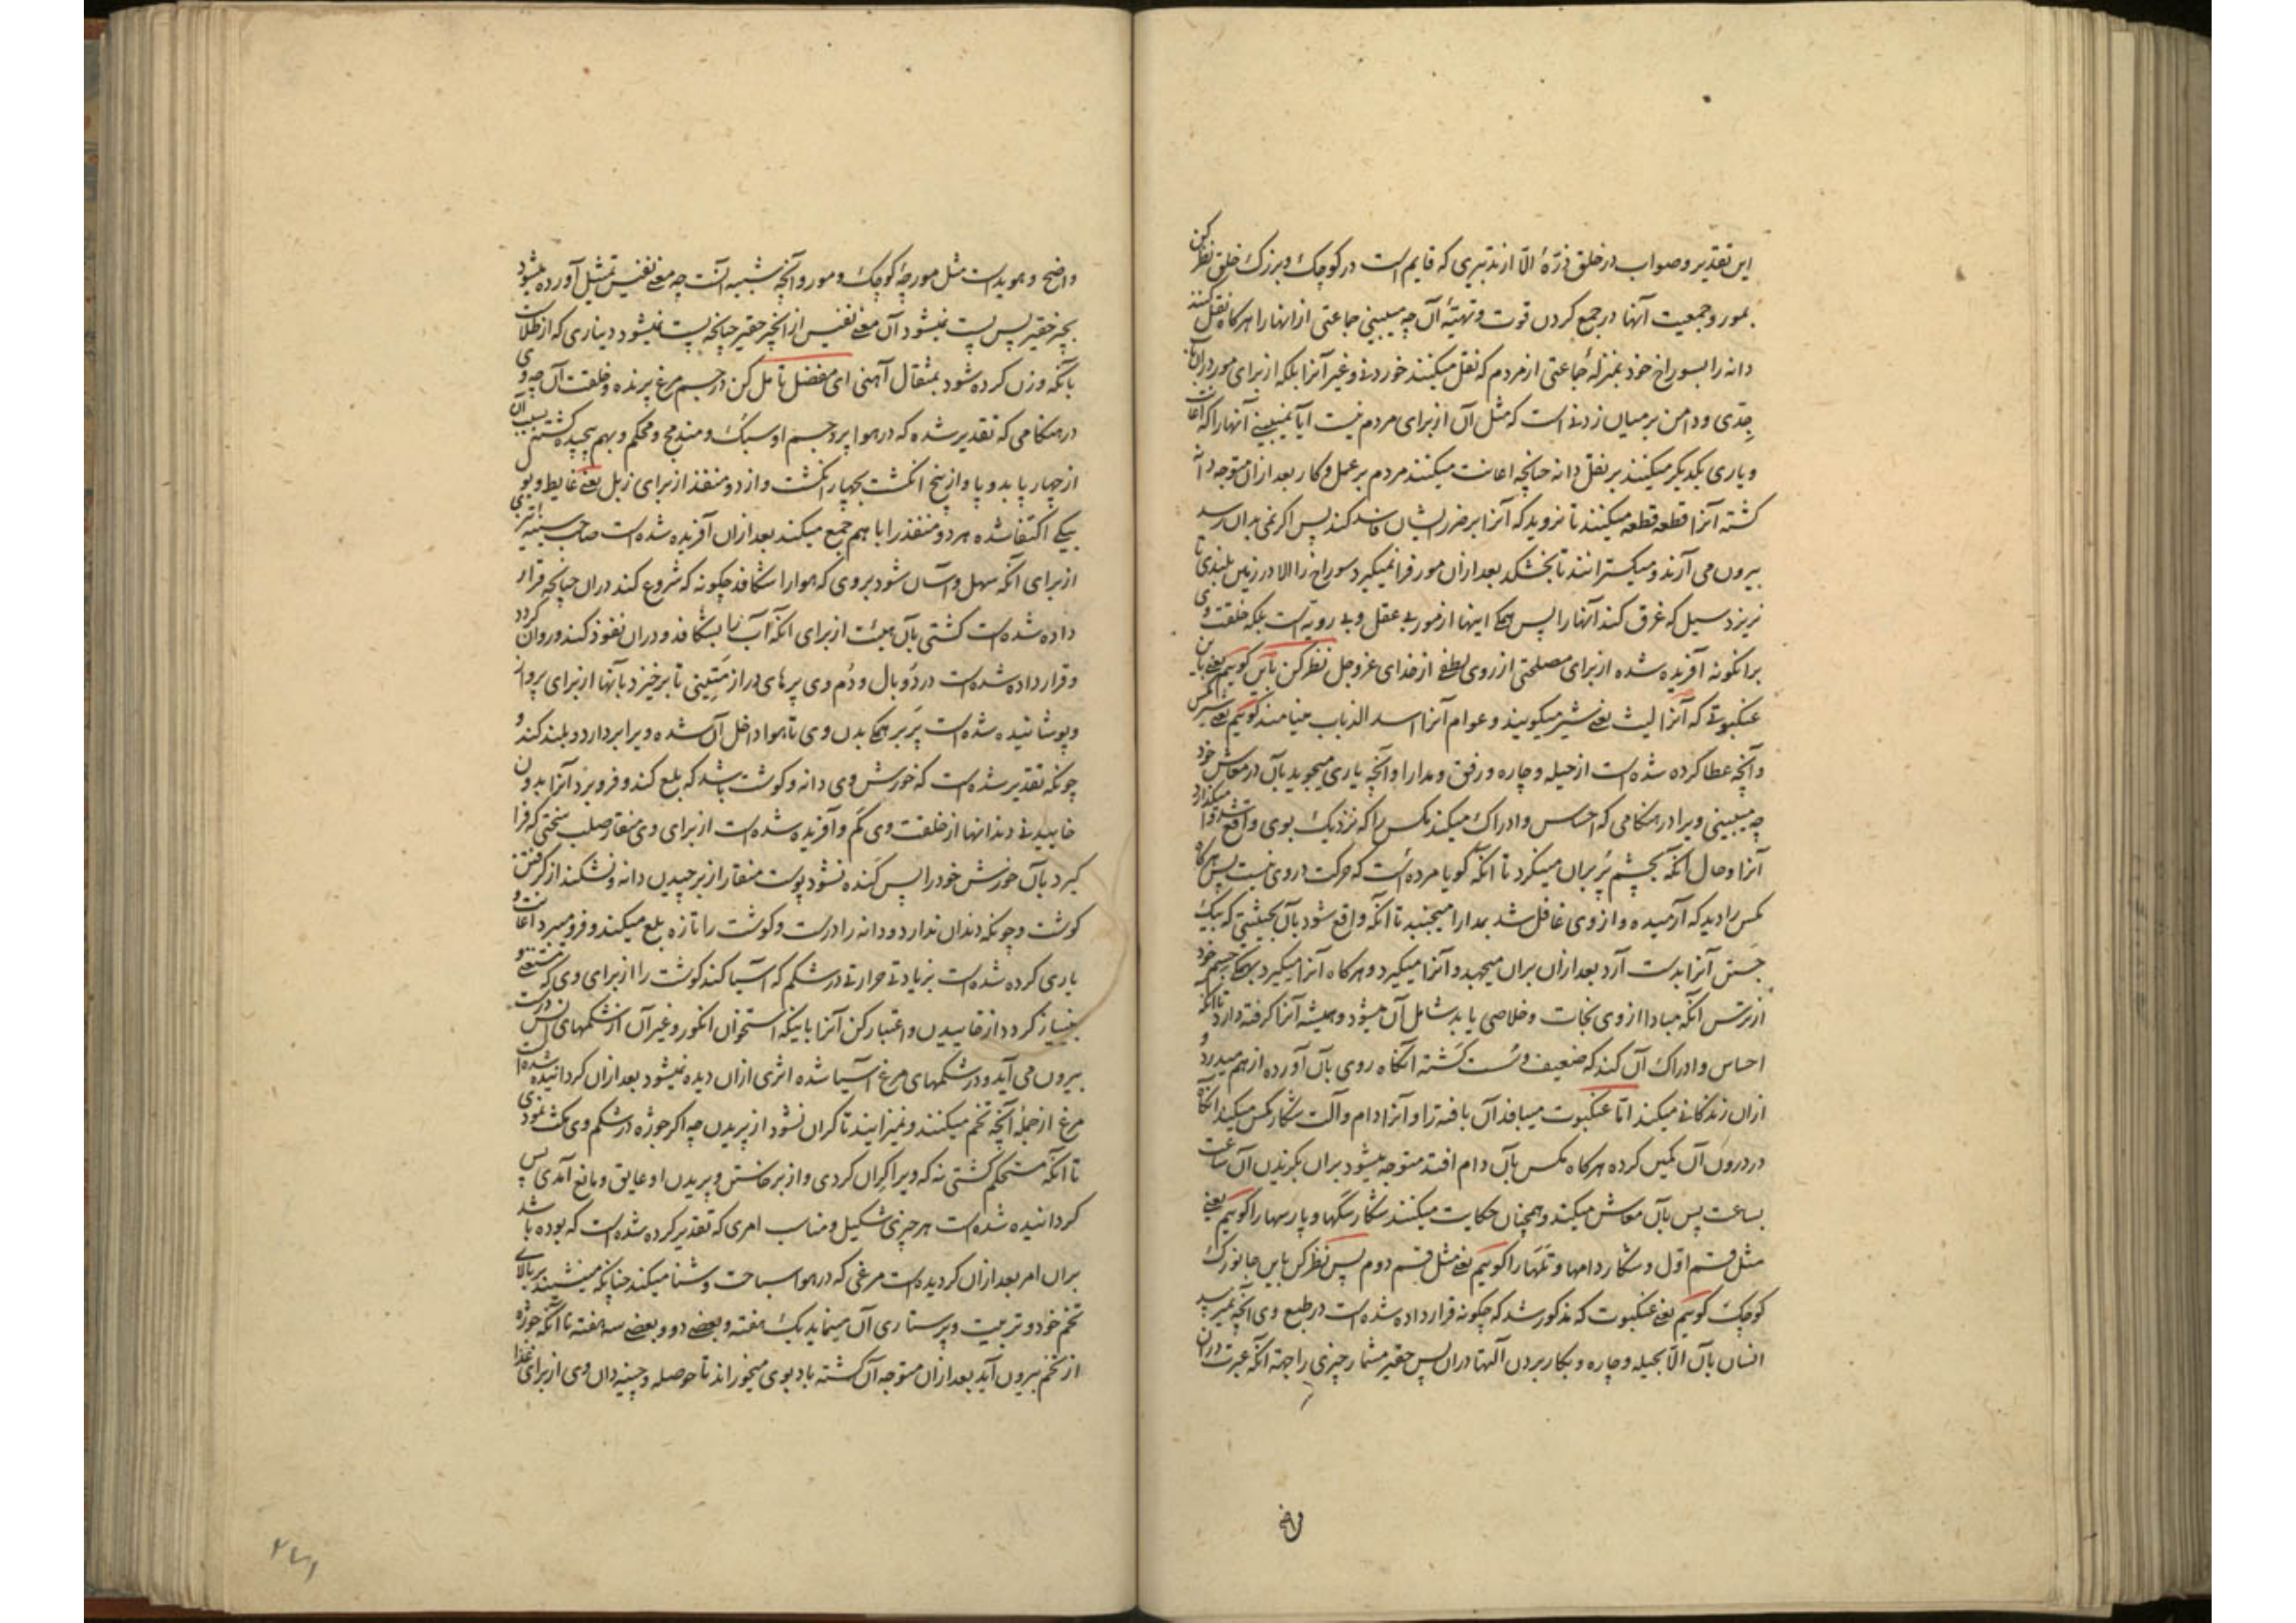 این تقدیر و صواب در خلق ذرّهٔ الّا از تدبیری که قایم است در کوچک و بزرک خلق نظر کن
بمور و جمعیت آنها در جمع کردن قوت و تهیّهٔ آن چه میبینی جماعتی از انها را هرکاه نقل کنند
دانه را بسوراخ خود بمنزلهٔ جماعتی از مردم که نقل میکنند خوردنی و غیر آنرا بلکه از برای مور دران
جدّی و دامن بر میان زدنی است که مثل آن از برای مردم نیست آیا نمیبینی آنها را که اعانت
و یاری یکدیکر میکنند بر نقل دانه چنانچه اعانت میکنند مردم بر عمل و کار بعد ازان متوجه دانه
کشته آنرا قطعه قطعه میکنند تا نروید که آنرا بر ضرر ایشان فاسد کند پس اکر نمی بدان رسد
بیرون می آرند و میکسترانند تا بخشکد بعد ازان مور فرا نمیکیرد سوراخ را الا در زمین بلندی تا
نریزد سیل که غرق کند آنها را پس همکی اینها از مور بی عقل و بی رویه است بلکه خلقت وی
برانکونه آفریده شده از برای مصلحتی از روی لطف از خدای عز و جل نظر کن باین کوییم یعنی باین
عنکبوتی که آنرا لیث یعنی شیر میکویند و عوام آنرا اسد الذباب مینامند کوییم یعنی شیر مکس
و آنچه عطا کرده شده است از حیله و چاره و رفق و مدارا و آنچه یاری میجوید بآن در معاش خود
چه میبینی ویرا در هنکامی که احساس و ادراک میکند مکس را که نزدیک بوی واقع شد وا میکذارد
آنرا و حال آنکه بچشم پر بران مینکرد تا آنکه کویا مرده است که حرکت در وی نیست پس هرکاه
مکس را دید که آرمیده و از وی غافل شد بمدارا میجنبد تا آنکه واقع شود بآن بحیثیتی که بیک
جستن آنرا بدست آرد بعد ازان بران میجهد و آنرا میکیرد و هرکاه آنرا میکیرد بهمکی جسم خود
از ترس آنکه مبادا از وی نجات و خلاصی یابد شامل آن میشود و همیشه آنرا کرفته دارد تا آنکه
احساس و ادراک آن کند که ضعیف و سست کشته آنکاه روی بآن آورده از هم میدرد و
ازان زندکانی میکند امّا عنکبوت میبافد آن بافته را و آنرا دام و آلت شکار مکس میکند آنکاه
در درون آن کمین کرده هرکاه مکس بآن دام افتد متوجه میشود بران بکزیدن آن ساعت
بساعت پس بآن معاش میکند و همچنان حکایت میکنند شکار سکها و پارسها را کوییم یعنی
مثل قسم اوّل و شکار دامها و تلهها را کوییم یعنی مثل قسم دوم پس نظر کن باین جانورک
کوچک کوییم یعنی عنکبوت که مذکور شد که چکونه قرار داده شده است در طبع وی آنچه نمیرسد
انسان بآن الّا بحیله و چاره و بکار بردن آلتها دران پس حقیر مشمار چیزی را جهته آنکه عبرت دران
واضح
واضح و هویداست مثل مورچهٔ کوچک و مور و آنچه شبیه آنست چه معنی نفیس تمثیل آورده میشود
بچیز حقیر پس پست نمیشود آن معنی نفیس ازان چیز حقیر چنانچه پست نمیشود دیناری که از طلاست
بانکه وزن کرده شود بمثقال آهنی ای مفضل تامل کن در جسم مرغ پرنده و خلقت آن چه وی
در هنکامی که تقدیر شده که در هوا پرد جسم او سبک و مندمج و محکم و بهم پیچیده کشته بسبب آن
از چهار پا بدو پا و از پنج انکشت بچهار انکشت و از دو منفذ از برای زبل یعنی غایط و بول
بیکی اکتفا شده هر دو منفذ را با هم جمع میکند بعد ازان آفریده شده است صاحب سینهٔ تیزی
از برای آنکه سهل و آسان شود بر وی که هوا را شکافد چکونه که شروع کند دران چنانچه قرار
داده شده است کشتی بآن هیئت از برای آنکه آب را بشکافد و دران نفوذ کند و روان کردد
و قرار داده شده است در دو بال و دُم وی پرهای دراز متینی تا برخیزد بآنها از برای پرواز
و پوشانیده شده است پر بر همکی بدن وی تا هوا داخل آن شده ویرا بردارد و بلند کند و
چونکه تقدیر شده است که خورش وی دانه و کوشت باشد که بلع کند و فرو برد آنرا بدون
خاییدنی دندانها از خلقت وی کم و آفریده شده است از برای وی منقار صلب سختی که فرا
کیرد بآن خورش خود را پس کنده نشود پوست منقار از برچیدن دانه و نشکند از کرفتن
کوشت و چونکه دندان ندارد و دانه را درست و کوشت را تازه بلع میکند و فرو میبرد اعانت و
یاری کرده شده است بزیادتی حرارتی در شکم که آسیا کند کوشت را از برای وی که مستغنی و
بینیاز کردد از خاییدن و اعتبار کن آنرا باینکه استخوان انکور و غیر آن از شکمهای انس درست
بیرون می آید و در شکمهای مرغ آسیا شده اثری ازان دیده نمیشود بعد ازان کردانیده شده است
مرغ از جملهٔ آنچه تخم میکنند و نمیزایند تا کران نشود از پریدن چه اکر جوژه در شکم وی مکث نمودی
تا آنکه مستحکم کشتی نه که ویرا کران کردی و از برخاستن و پریدن او عایق و مانع آمدی پس
کردانیده شده است هر چیزی شکیل و مناسب امری که تقدیر کرده شده است که بوده باشد
بران امر بعد ازان کردیده است مرغی که در هوا سباحت و شنا میکند چنانکه مینشیند بر بالای
تخم خود و تربیت و پرستاری آن مینماید یک هفته و بعضی دو و بعضی سه هفته تا آنکه جوژه
از تخم بیرون آید بعد ازان متوجه آن کشته باد بوی میخوراند تا حوصله و چینه دان وی از برای غذا
۲۷۱